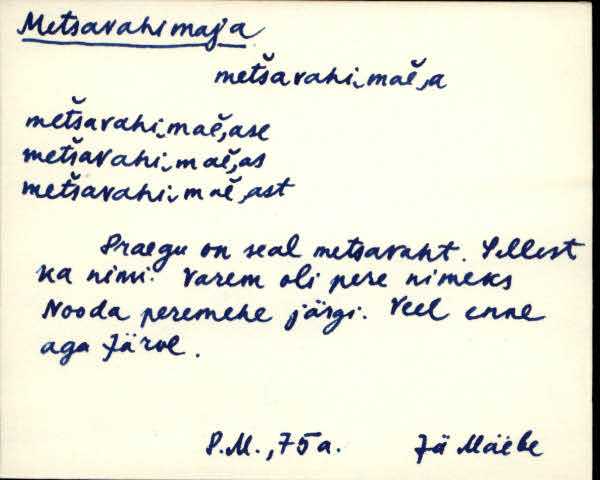 Metsavahimaja
metšavahi‿maě‿a
metšavahi‿maě‿ase
metšavahi‿maě‿as
metšavahi‿maě‿ast
Praegu on seal metsavaht. Sellest
ka nimi. Varem oli pere nimeks
Nooda peremehe järgi. Veel enne
aga Järve.
P.M., 75a. Jä Mäebe